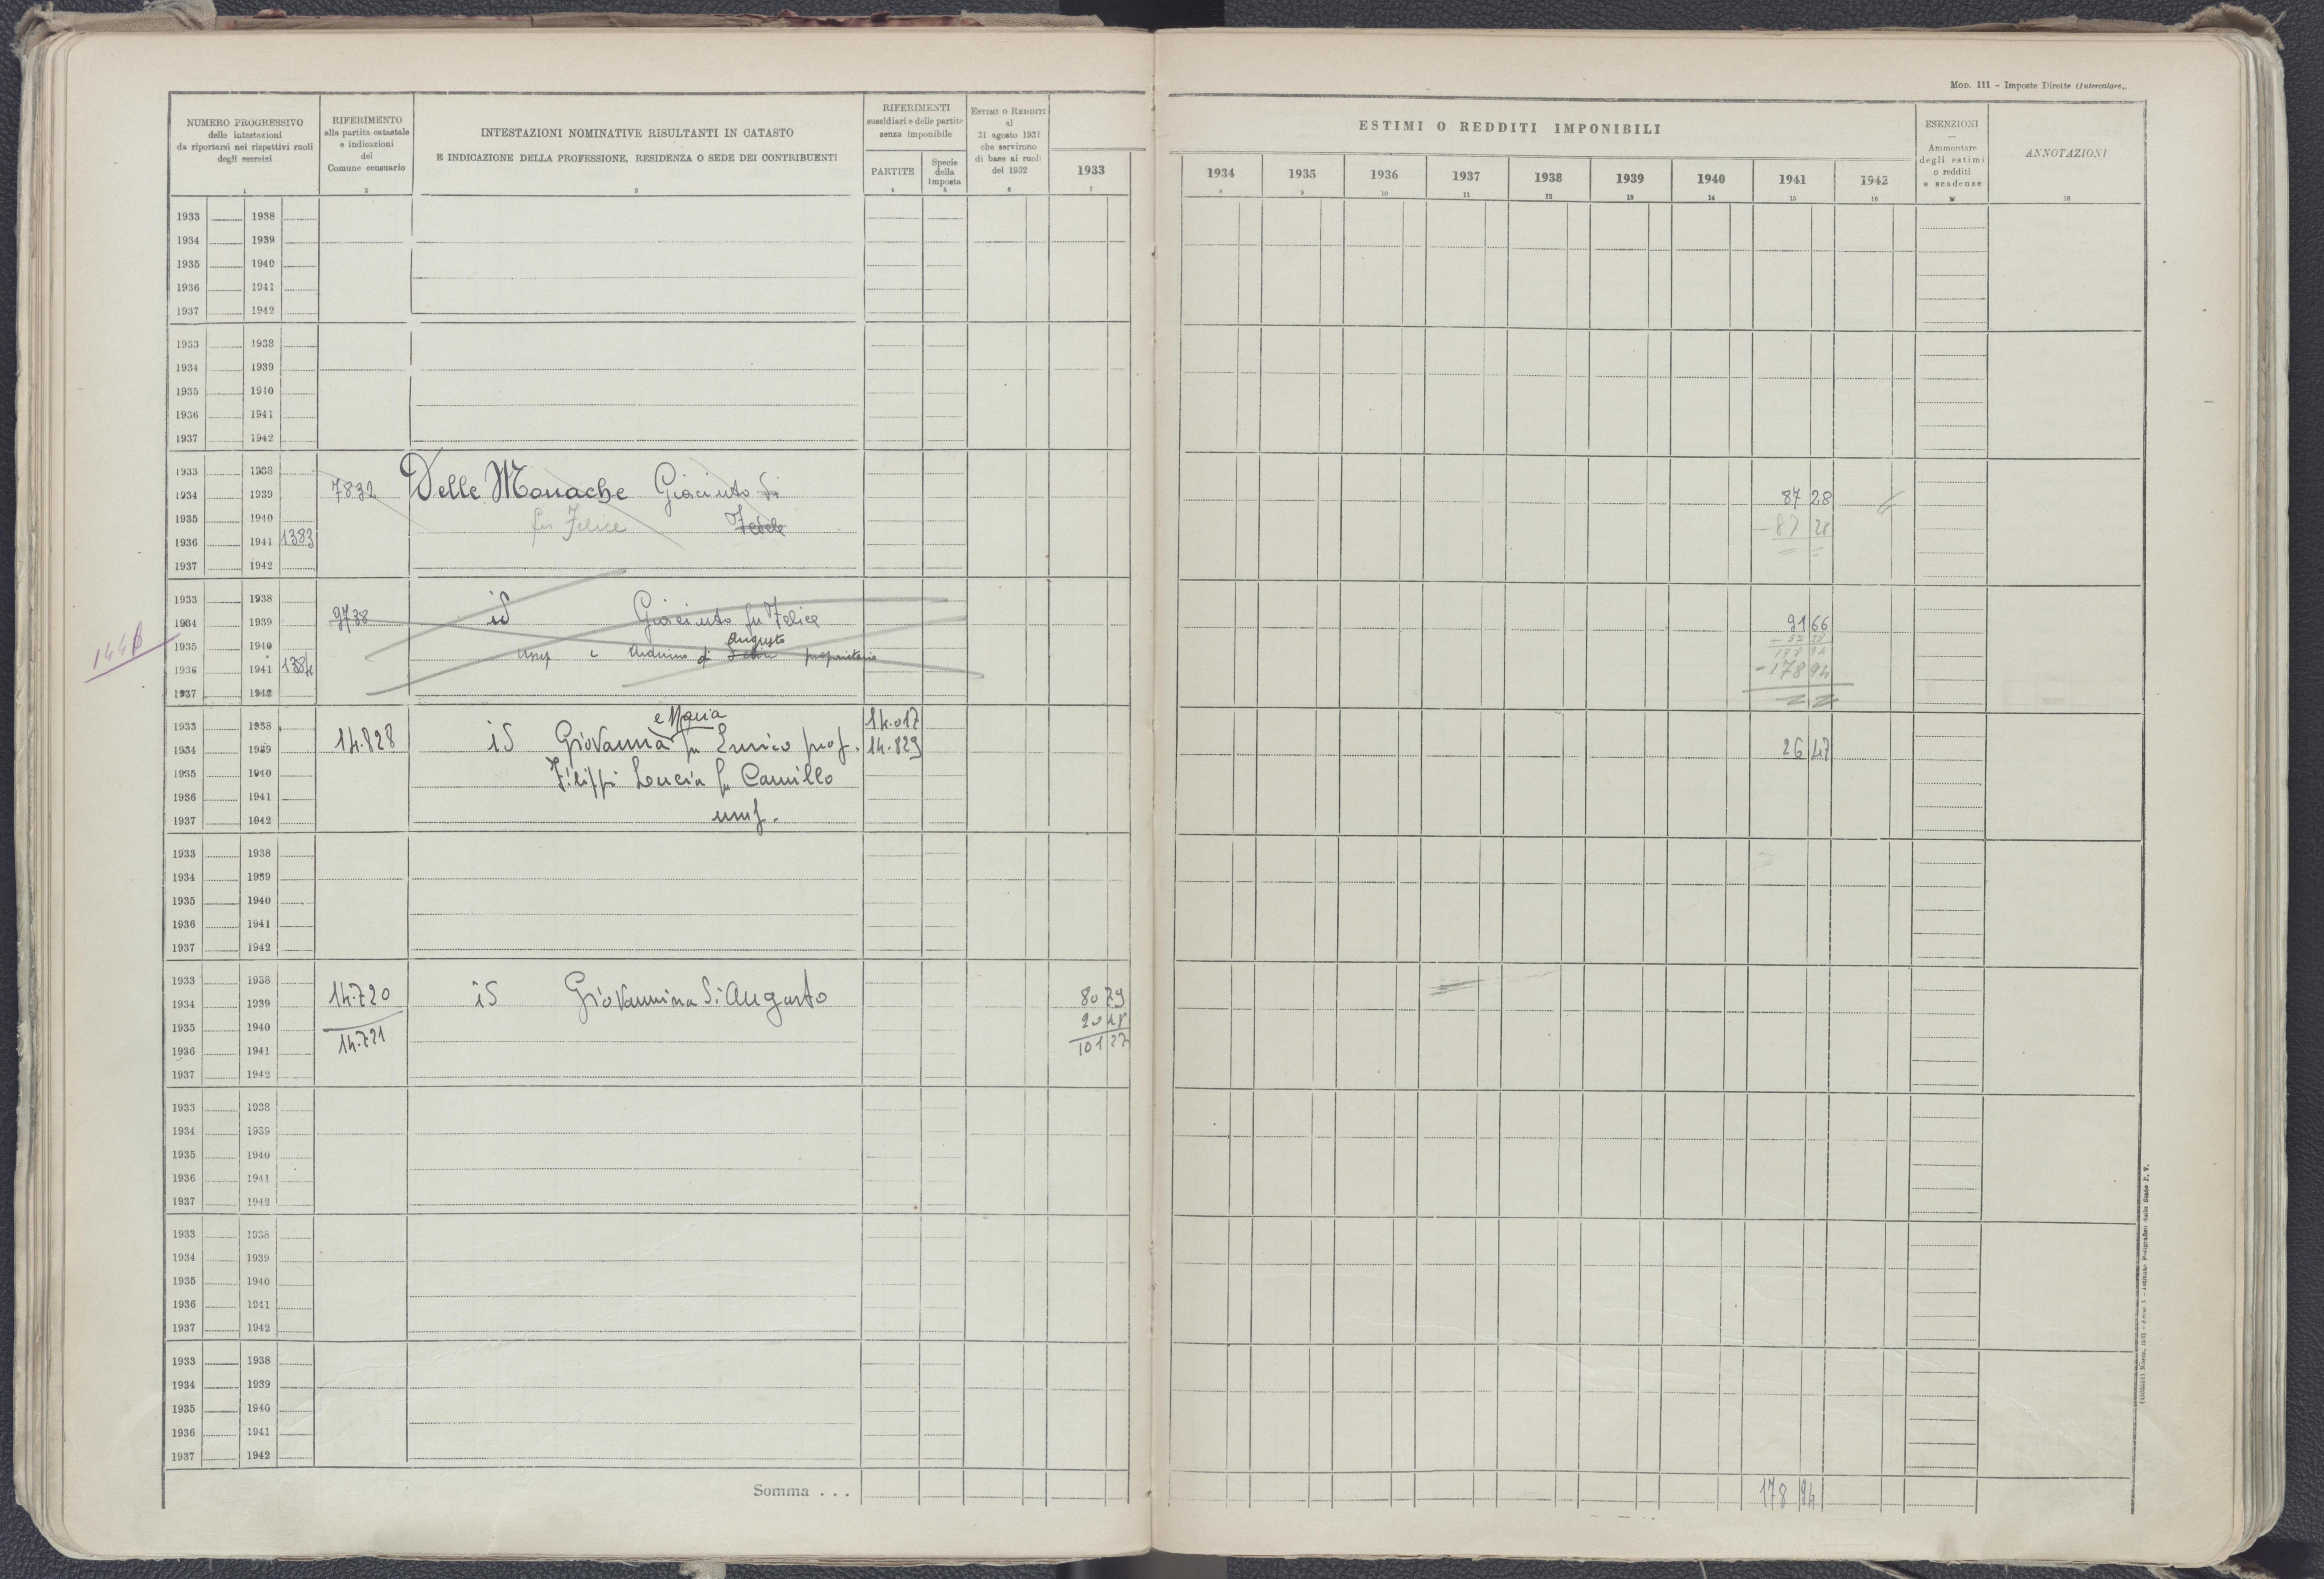 Mod. 111 - Imposte Dirette (Intercalare).
NUMERO PROGRESSIVO
delle intestazioni
da riportarsi nei rispettivi ruoli
degli esercizi
1
RIFERIMENTO
alla partita catastale
e indicazioni
del
Comune censuario
2
INTESTAZIONI NOMINATIVE RISULTANTI IN CATASTO
E INDICAZIONE DELLA PROFESSIONE, RESIDENZA O SEDE DEI CONTRIBUENTI
3
RIFERIMENTI
sussidiari e delle partite
senza imponibile
PARTITE
4
Specie
della
imposta
5
ESTIMI O REDDITI
al
31 agosto 1931
che servirono
di base ai ruoli
del 1932
6
1933
7
ESTIMI O REDDITI IMPONIBILI
1934 1935 1936 1937 1938 1939 1940 1941 1942
8 9 10 11 12 13 14 15 16
ESENZIONI
—
Ammontare
degli estimi
o redditi
e scadenze
ANNOTAZIONI
18
1933 1938
1934 1939
1935 1940
1936 1941
1937 1942
1933 1938
1934 1939
1935 1940
1936 1941
1937 1942
1933 1938
1934 1939 7832 Delle Monache Giacinto di 87 28
1935 1940 fu Felice Fedele - 87 28
1936 1941 1383
1937 1942
1933 1938
1934 1939 9738 id Giacinto fu Felice 91 66
Augusto
1935 1940 178 94
1446
1936 1941 1384 usuf e Arduino di proprietario - 178 94
1937 1942
e Maria
1933 1938 14.017
1934 1939 14.828 id Giovanna fu Enrico prof. 14.829 26 47
1935 1940 Filippi Lucia fu Camillo
1936 1941
1937 1942 usuf.
1933 1938
1934 1939
1935 1940
1936 1941
1937 1942
1933 1938
1934 1939 14.720 id Giovannina di Augusto 80 79
1935 1940 14.721 20 48
1936 1941 101 27
1937 1942
1933 1938
1934 1939
1935 1940
1936 1941
1937 1942
1933 1938
1934 1939
1935 1940
1936 1941
1937 1942
1933 1938
1934 1939
1935 1940
1936 1941
1937 1942
Somma . . . 178 94